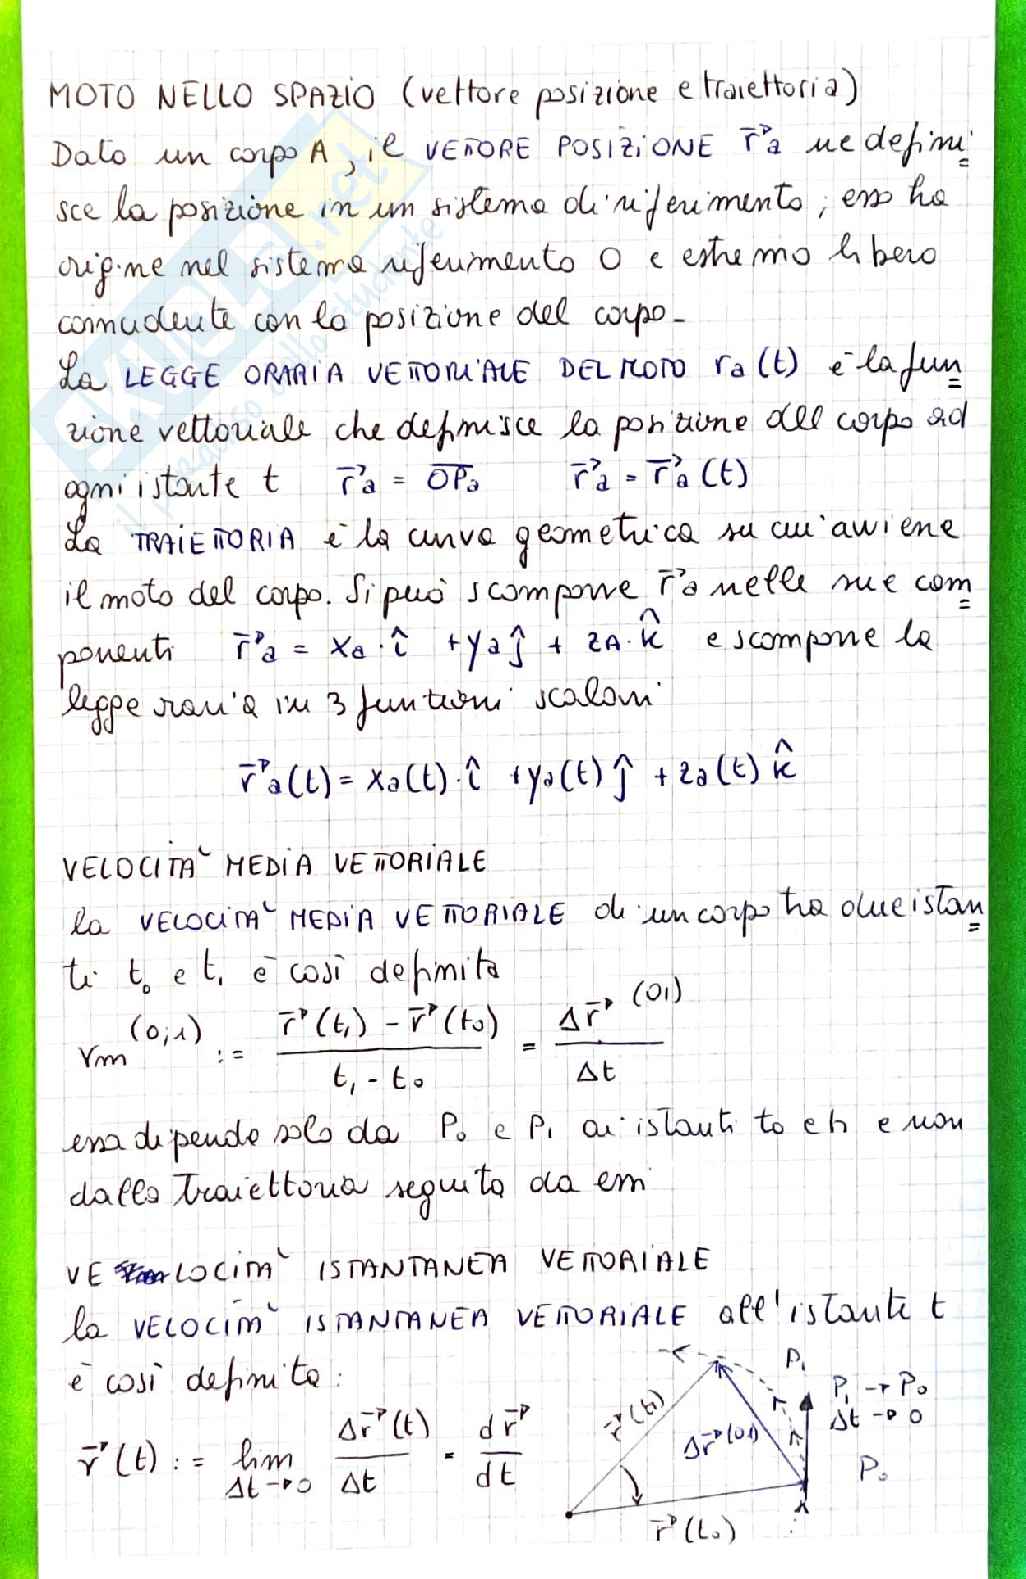 MOTO NELLO SPAZIO (vettore posizione e traiettoria)
Dato un corpo A, il VETTORE POSIZIONE r⃗a ne defini=
sce la posizione in un sistema di riferimento; esso ha
origine nel sistema riferimento O e estremo libero
coincidente con la posizione del corpo-
La LEGGE ORARIA VETTORIALE DEL MOTO ra(t) è la fun=
zione vettoriale che definisce la posizione del corpo ad
ogni istante t r⃗a = OPa r⃗a = r⃗a(t)
La TRAIETTORIA è la curva geometrica su cui avviene
il moto del corpo. Si può scomporre r⃗a nelle sue com=
ponenti r⃗a = xa·î + yaĵ + zA·k̂ e scomporre la
legge oraria in 3 funzioni scalari
r⃗a(t) = xa(t)·î + ya(t)ĵ + za(t)k̂
VELOCITA` MEDIA VETTORIALE
la VELOCITA` MEDIA VETTORIALE di un corpo tra due istan=
ti t₀ e t₁ è così definita
vm (0;1) := r⃗(t₁) - r⃗(t₀) / t₁ - t₀ = Δr⃗ (01) / Δt
essa dipende solo da P₀ e P₁ ai istanti t₀ e t₁ e non
dalla traiettoria seguita da essi
VELOCITA` ISTANTANEA VETTORIALE
la VELOCITA` ISTANTANEA VETTORIALE all'istante t
è così definita:
v⃗(t) := lim Δt→0 Δr⃗(t) / Δt = dr⃗ / dt
P₁
r⃗(t₁)
Δr⃗(01)
P₁ → P₀
Δt → 0
P₀
r⃗(t₀)
SKUOLA.net